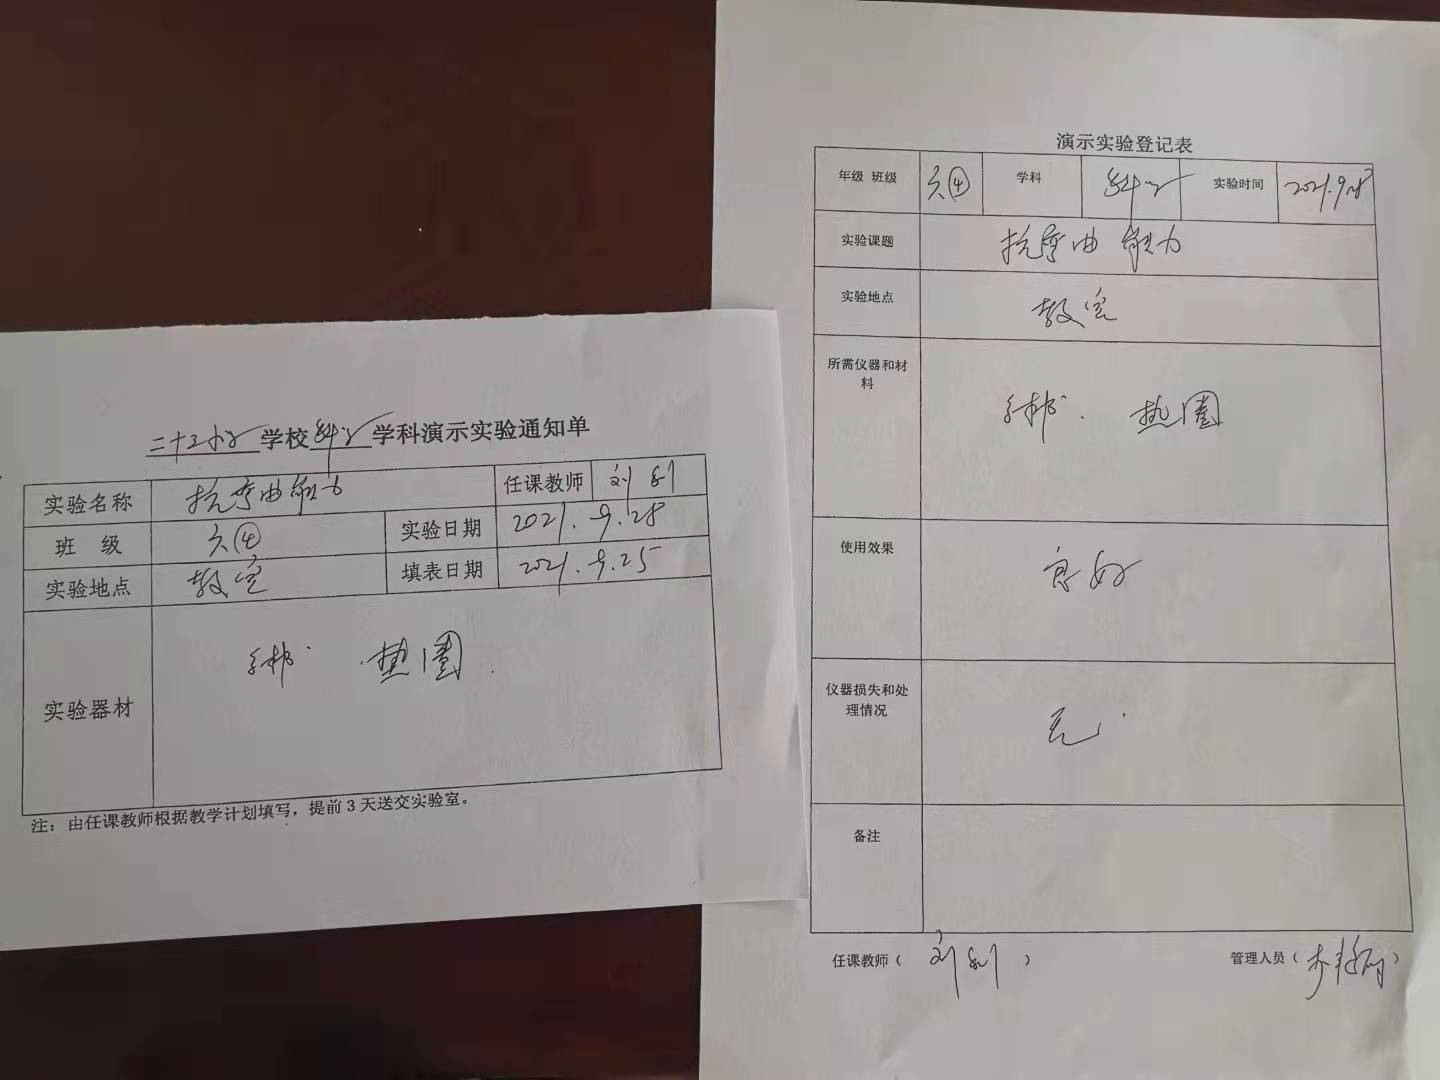 二十三小学 学校 科学 学科演示实验通知单
实验名称 抗弯曲能力 任课教师 刘
班 级 六④ 实验日期 2021.9.28
实验地点 教室 填表日期 2021.9.25
实验器材 垫圈
注：由任课教师根据教学计划填写，提前3天送交实验室。
演示实验登记表
年级 班级 六④ 学科 科学 实验时间 2021.9.28
实验课题 抗弯曲能力
实验地点 教室
所需仪器和材料 垫圈
使用效果 良好
仪器损失和处理情况 无.
备注
任课教师（刘 ） 管理人员（李 ）